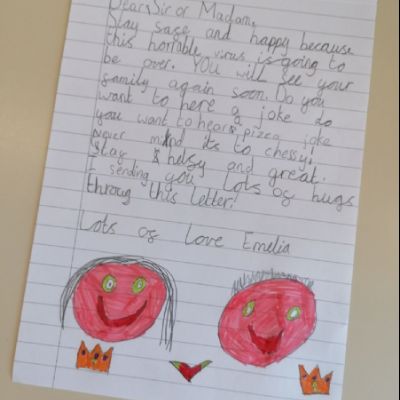 Dear Sir or Madam,
Stay sage and happy because
this horrable virus is going to
be over. You will see your
gamily again soon. Do you
want to here a joke do
you want to hear a pizza joke
never mind its to chessy!
Stay helsy and great.
I sending you lots og hugs
throug this letter!
Lots og love Emelia